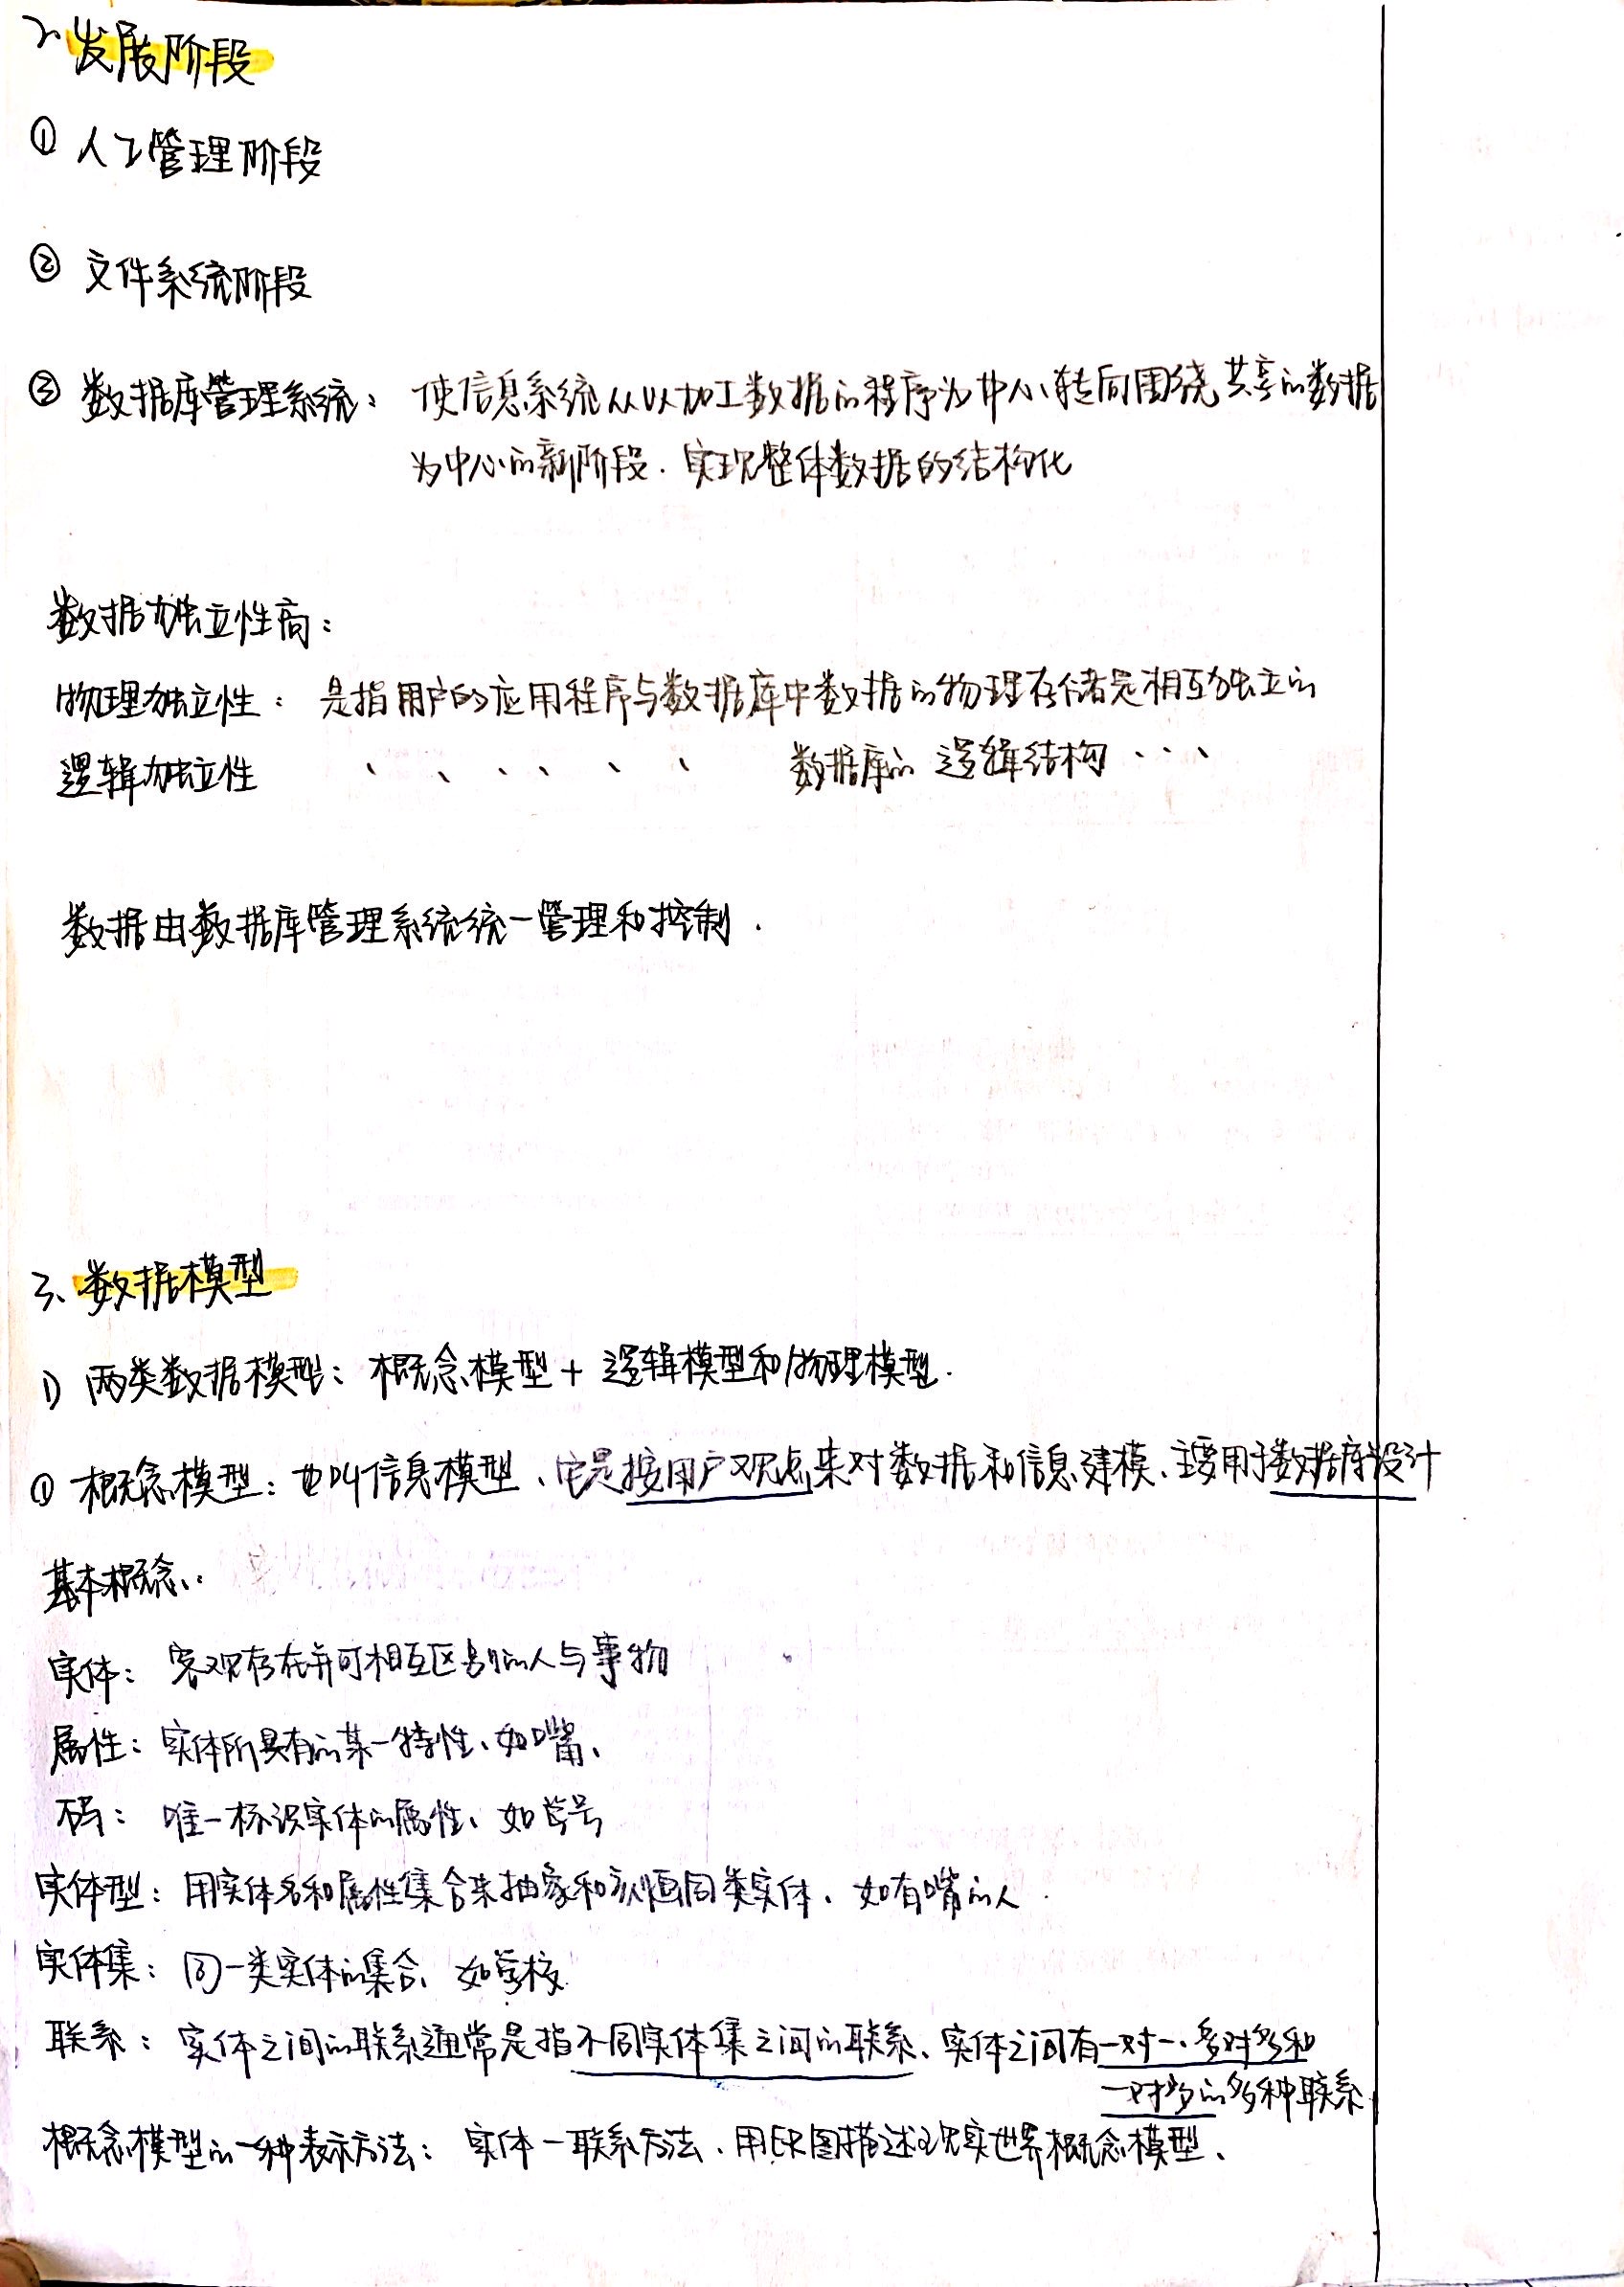 2、发展阶段
① 人工管理阶段
② 文件系统阶段
③ 数据库管理系统：使信息系统从以加工数据的程序为中心转向围绕共享的数据
为中心的新阶段. 实现整体数据的结构化
数据独立性高：
物理独立性：是指用户的应用程序与数据库中数据的物理存储是相互独立的
逻辑独立性 、、、、、、 数据库的逻辑结构、、、
数据由数据库管理系统统一管理和控制.
3、数据模型
1) 两类数据模型：概念模型 + 逻辑模型和物理模型.
① 概念模型：也叫信息模型、它是按用户观点来对数据和信息建模、主要用于数据库设计
基本概念：
实体：客观存在并可相互区别的人与事物
属性：实体所具有的某一特性、如嘴、
码：唯一标识实体的属性、如学号
实体型：用实体名和属性集合来抽象和刻画同类实体、如有嘴的人.
实体集：同一类实体的集合、如学校
联系：实体之间的联系通常是指不同实体集之间的联系、实体之间有一对一、多对多和
一对多的多种联系
概念模型的一种表示方法：实体-联系方法、用ER图描述现实世界概念模型、